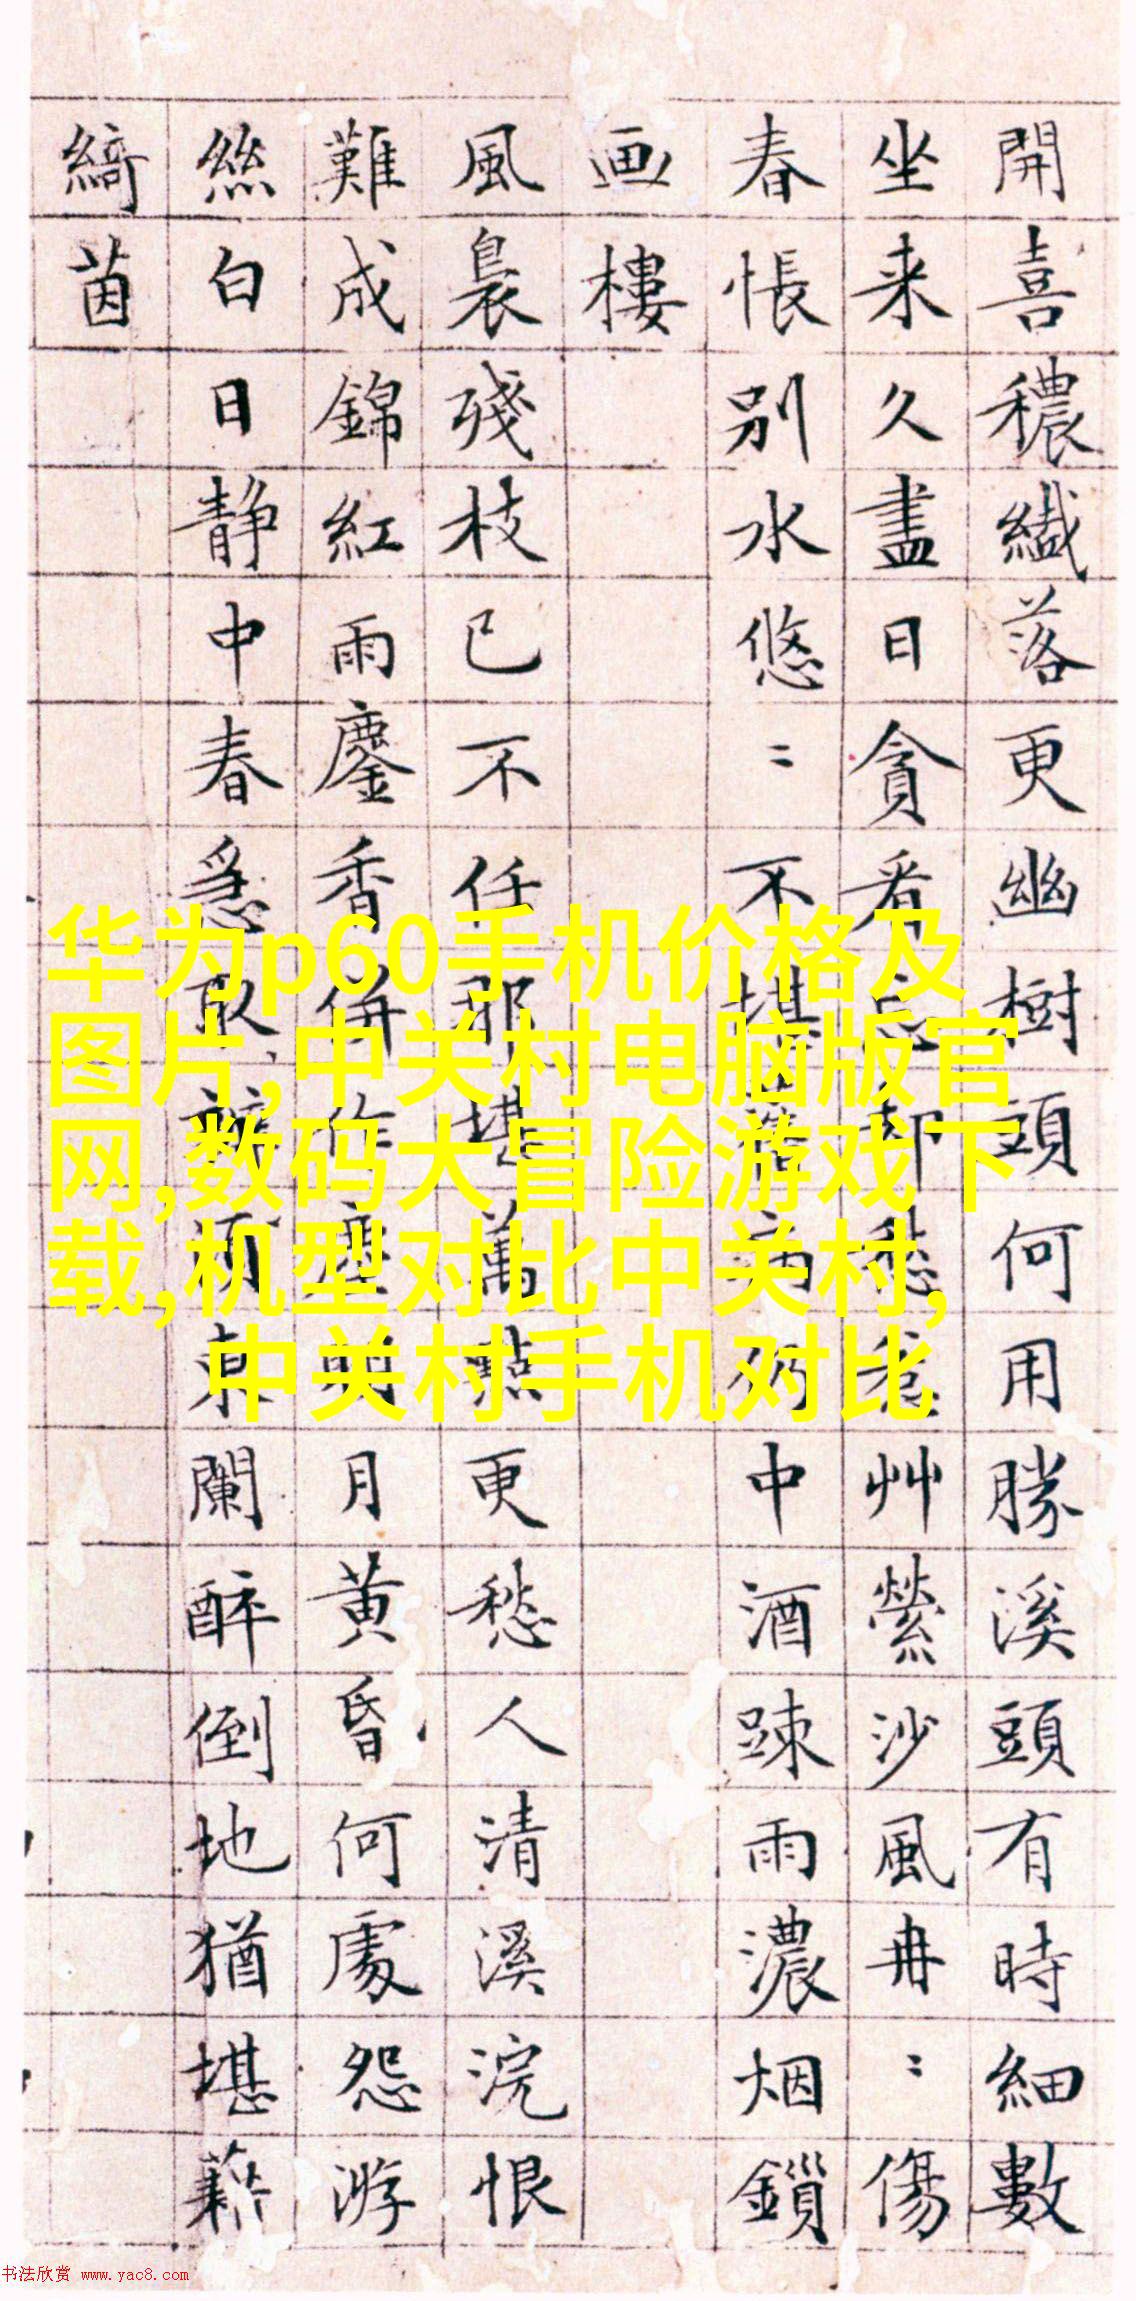 開喜穠纎落更幽樹頭何用勝溪頭有時細數
坐来久盡日貪看忘却愁惹艸縈沙風冉〻傷
春悵別水悠〻不堪舊病仍中酒踈雨濃烟鎖
画樓
風裊殘枝已不任那堪萬點更愁人清溪浣恨
難成錦紅雨鏖香併作塵明月黄昏何處怨游
絲白日静中春東闌醉倒地猶堪藉
綺茵
华为p60手机价格及
图片,中关村电脑版官
网,数码大冒险游戏下
载,机型对比中关村,
中关村手机对比
书法欣赏 www.yac8.com